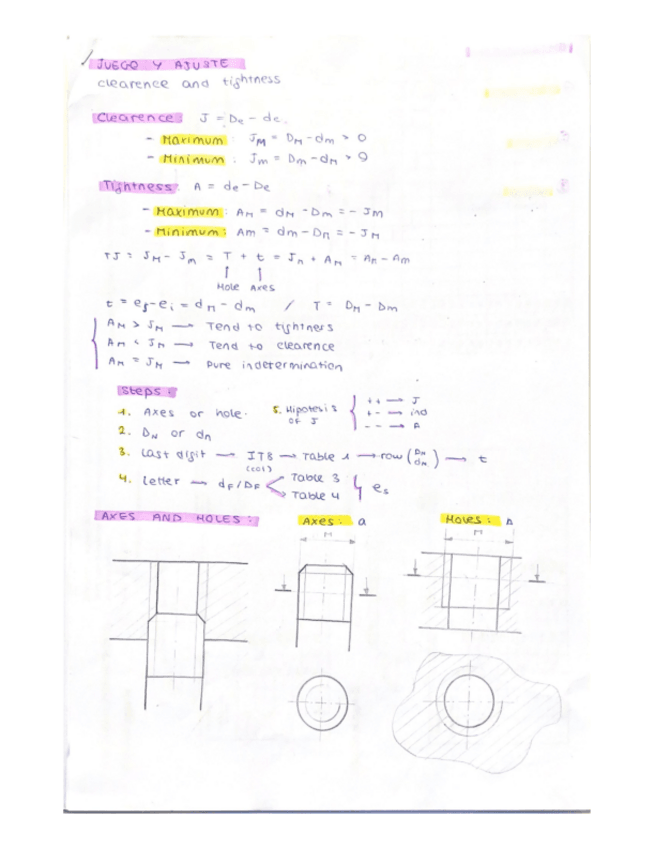 JUEGO Y AJUSTE
clearence and tightness
Clearence: J = De - de.
- Maximum: JM = DM - dm > 0
- Minimum: Jm = Dm - dM > 0
Tightness: A = de - De
- Maximum: AM = dM - Dm = - Jm
- Minimum: Am = dm - DM = - JM
TJ = JM - Jm = T + t = JM + AM = AM - Am
Hole Axes
t = es - ei = dM - dm / T = DM - Dm
AM > JM → Tend to tightness
AM < JM → Tend to clearence
AM = JM → Pure indetermination
Steps:
1. Axes or hole.
2. DN or dn
3. Last digit → IT8 → Table 1 → row (DN dN) → t
(col)
4. Letter → dF/DF Table 3 Table 4 es
5. Hipotesis of J
+ + → J
+ - → ind
- - → A
AXES AND HOLES:
Axes: a
Holes: A
M
M